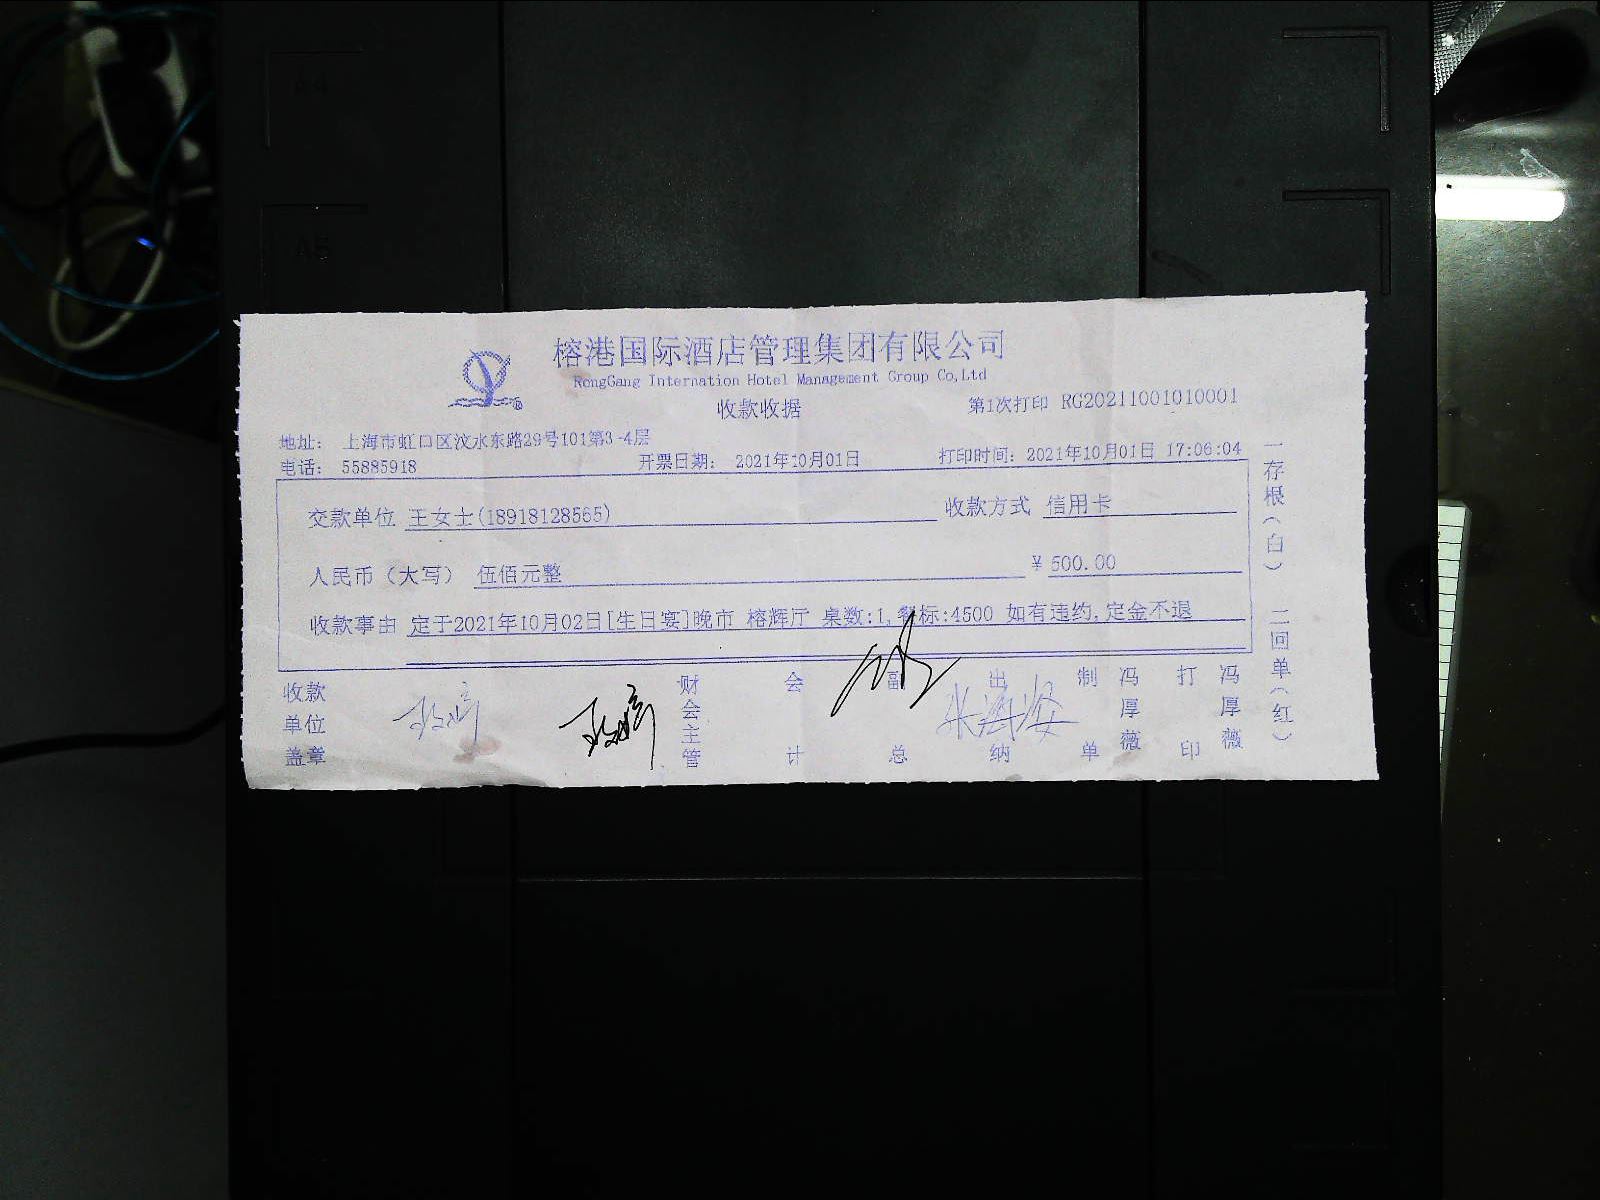 榕港国际酒店管理集团有限公司
RongGang Internation Hotel Management Group Co,Ltd
收款收据
第1次打印 RG20211001010001
地址： 上海市虹口区汶水东路29号101第3-4层
电话： 55885918 开票日期： 2021年10月01日 打印时间：2021年10月01日 17:06:04
交款单位 王女士(18918128565) 收款方式 信用卡
人民币（大写） 伍佰元整 ￥500.00
收款事由 定于2021年10月02日[生日宴]晚市 榕辉厅 桌数:1,餐标:4500 如有违约,定金不退
收款单位盖章 财会主管 会计 副总 出纳 制单 冯厚薇 打印 冯厚薇
一存根（白） 二回单（红）
A5